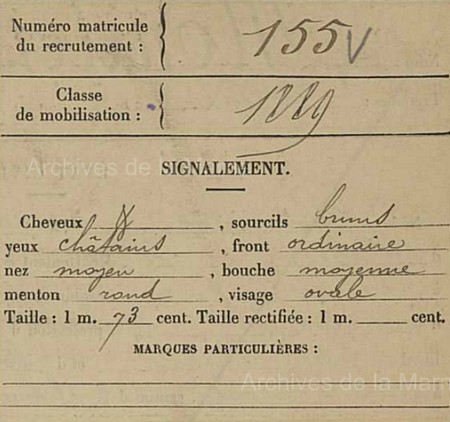 Numéro matricule
du recrutement : 155
Classe
de mobilisation : 1889
SIGNALEMENT.
Cheveux & , sourcils bruns
yeux châtains , front ordinaire
nez moyen , bouche moyenne
menton rond , visage ovale
Taille : 1 m. 73 cent. Taille rectifiée : 1 m. cent.
MARQUES PARTICULIÈRES :
Archives de la Marne